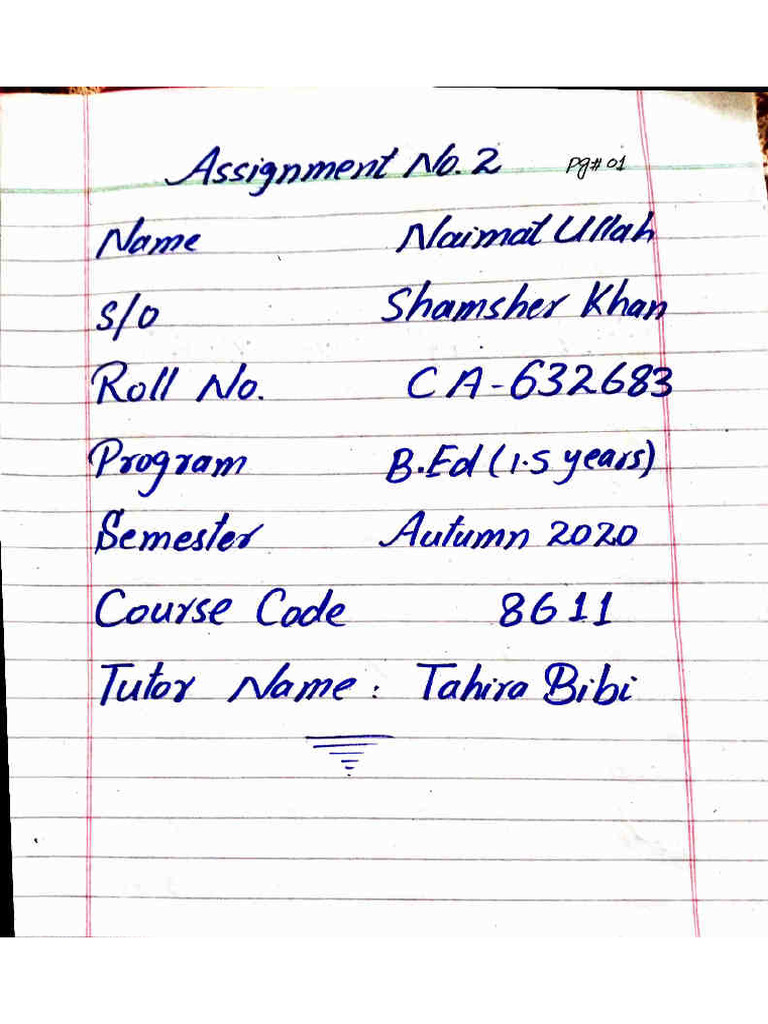 Assignment No. 2 Pg# 01
Name Naimat Ullah
S/O Shamsher Khan
Roll No. CA-632683
Program B.Ed (1.5 years)
Semester Autumn 2020
Course Code 8611
Tutor Name : Tahira Bibi